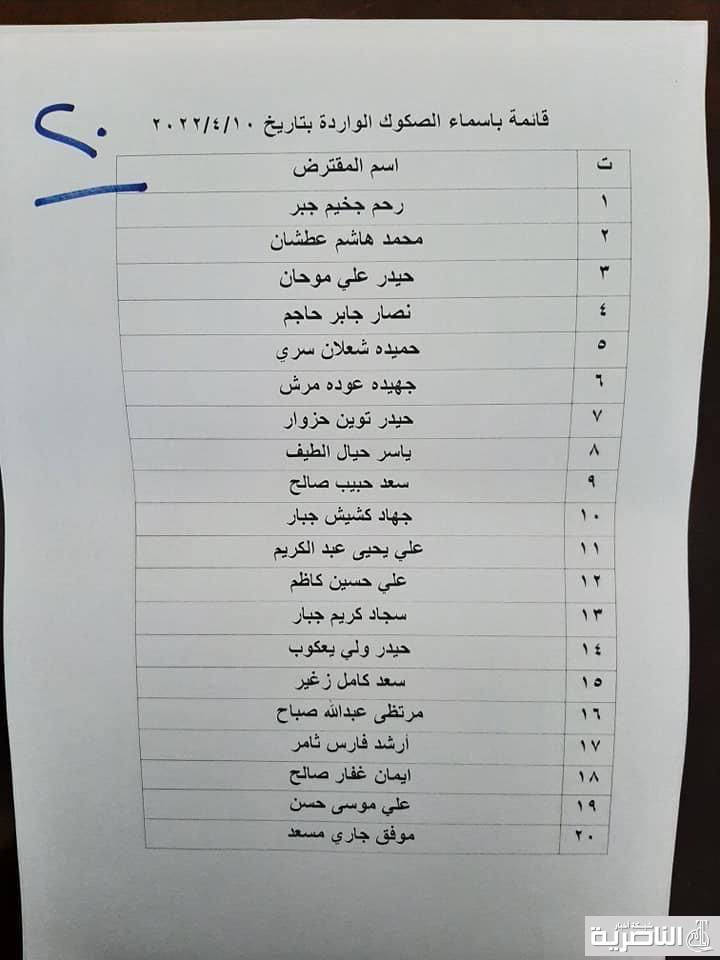 ٢٠
قائمة باسماء الصكوك الواردة بتاريخ ٢٠٢٢/٤/١٠
ت اسم المقترض
١ رحم جخيم جبر
٢ محمد هاشم عطشان
٣ حيدر علي موحان
٤ نصار جابر حاجم
٥ حميده شعلان سري
٦ جهيده عوده مرش
٧ حيدر توين حزوار
٨ ياسر حيال الطيف
٩ سعد حبيب صالح
١٠ جهاد كشيش جبار
١١ علي يحيى عبد الكريم
١٢ علي حسين كاظم
١٣ سجاد كريم جبار
١٤ حيدر ولي يعكوب
١٥ سعد كامل زغير
١٦ مرتظى عبدالله صباح
١٧ أرشد فارس ثامر
١٨ ايمان غفار صالح
١٩ علي موسى حسن
٢٠ موفق جاري مسعد
شبكة اخبار
الناصرية